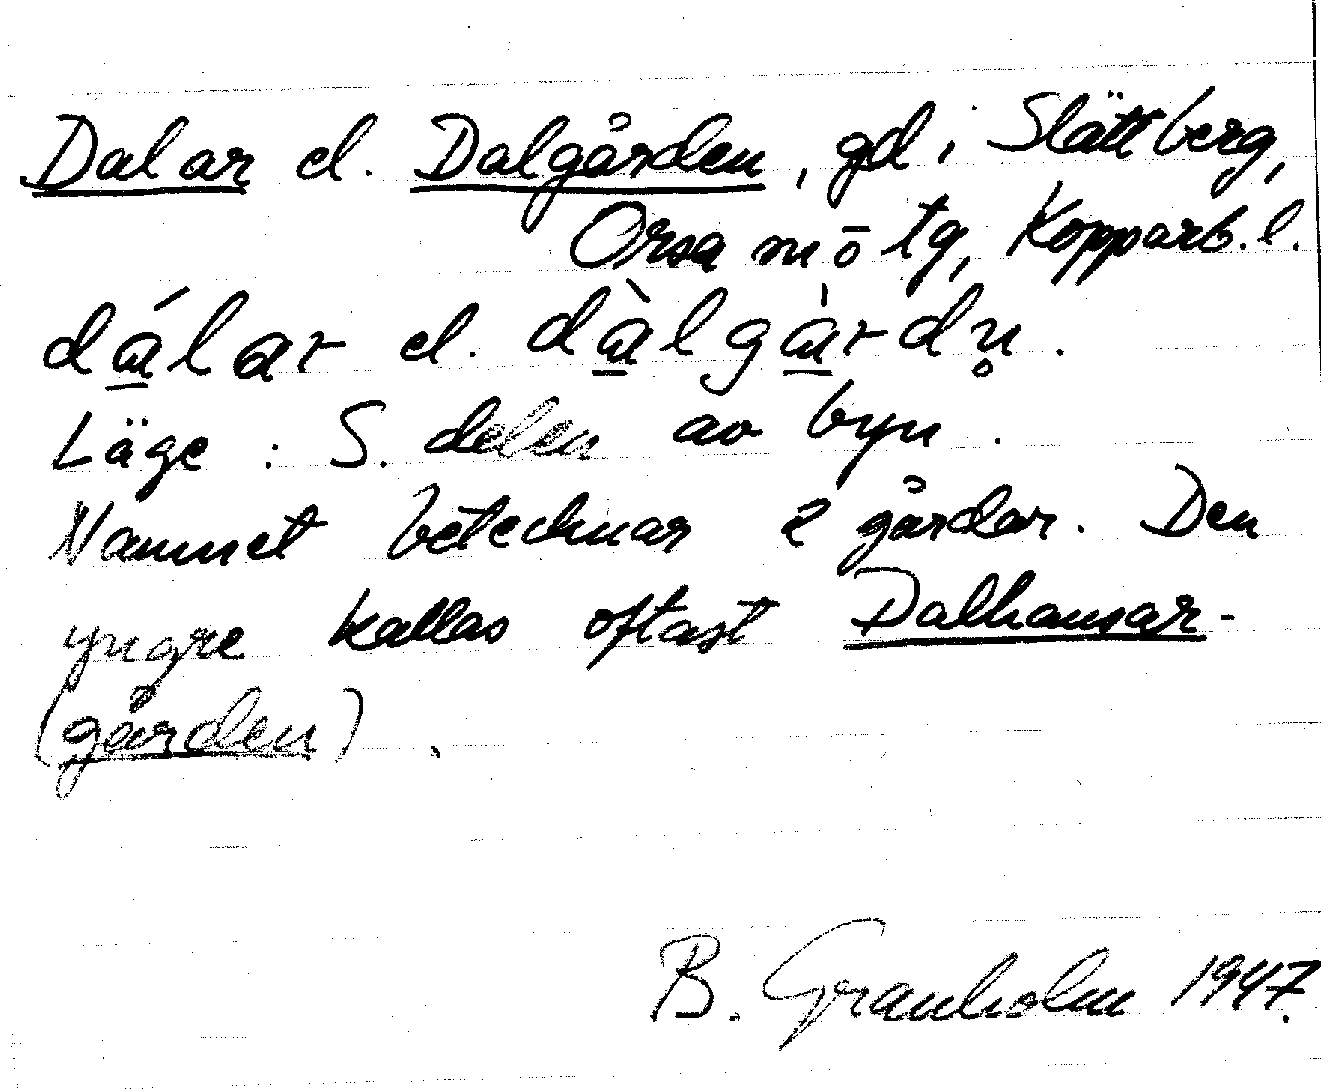 Dalar el. Dalgården, gd i Slättberg,
Orsa m ō tg, Kopparb. l.
dá̲lar el. dà̲lgà̲rdn̥.
Läge : S. delen av byn.
Namnet betecknar 2 gårdar. Den
yngre kallas oftast Dalhansar-
(gården).
B. Granholm 1947.